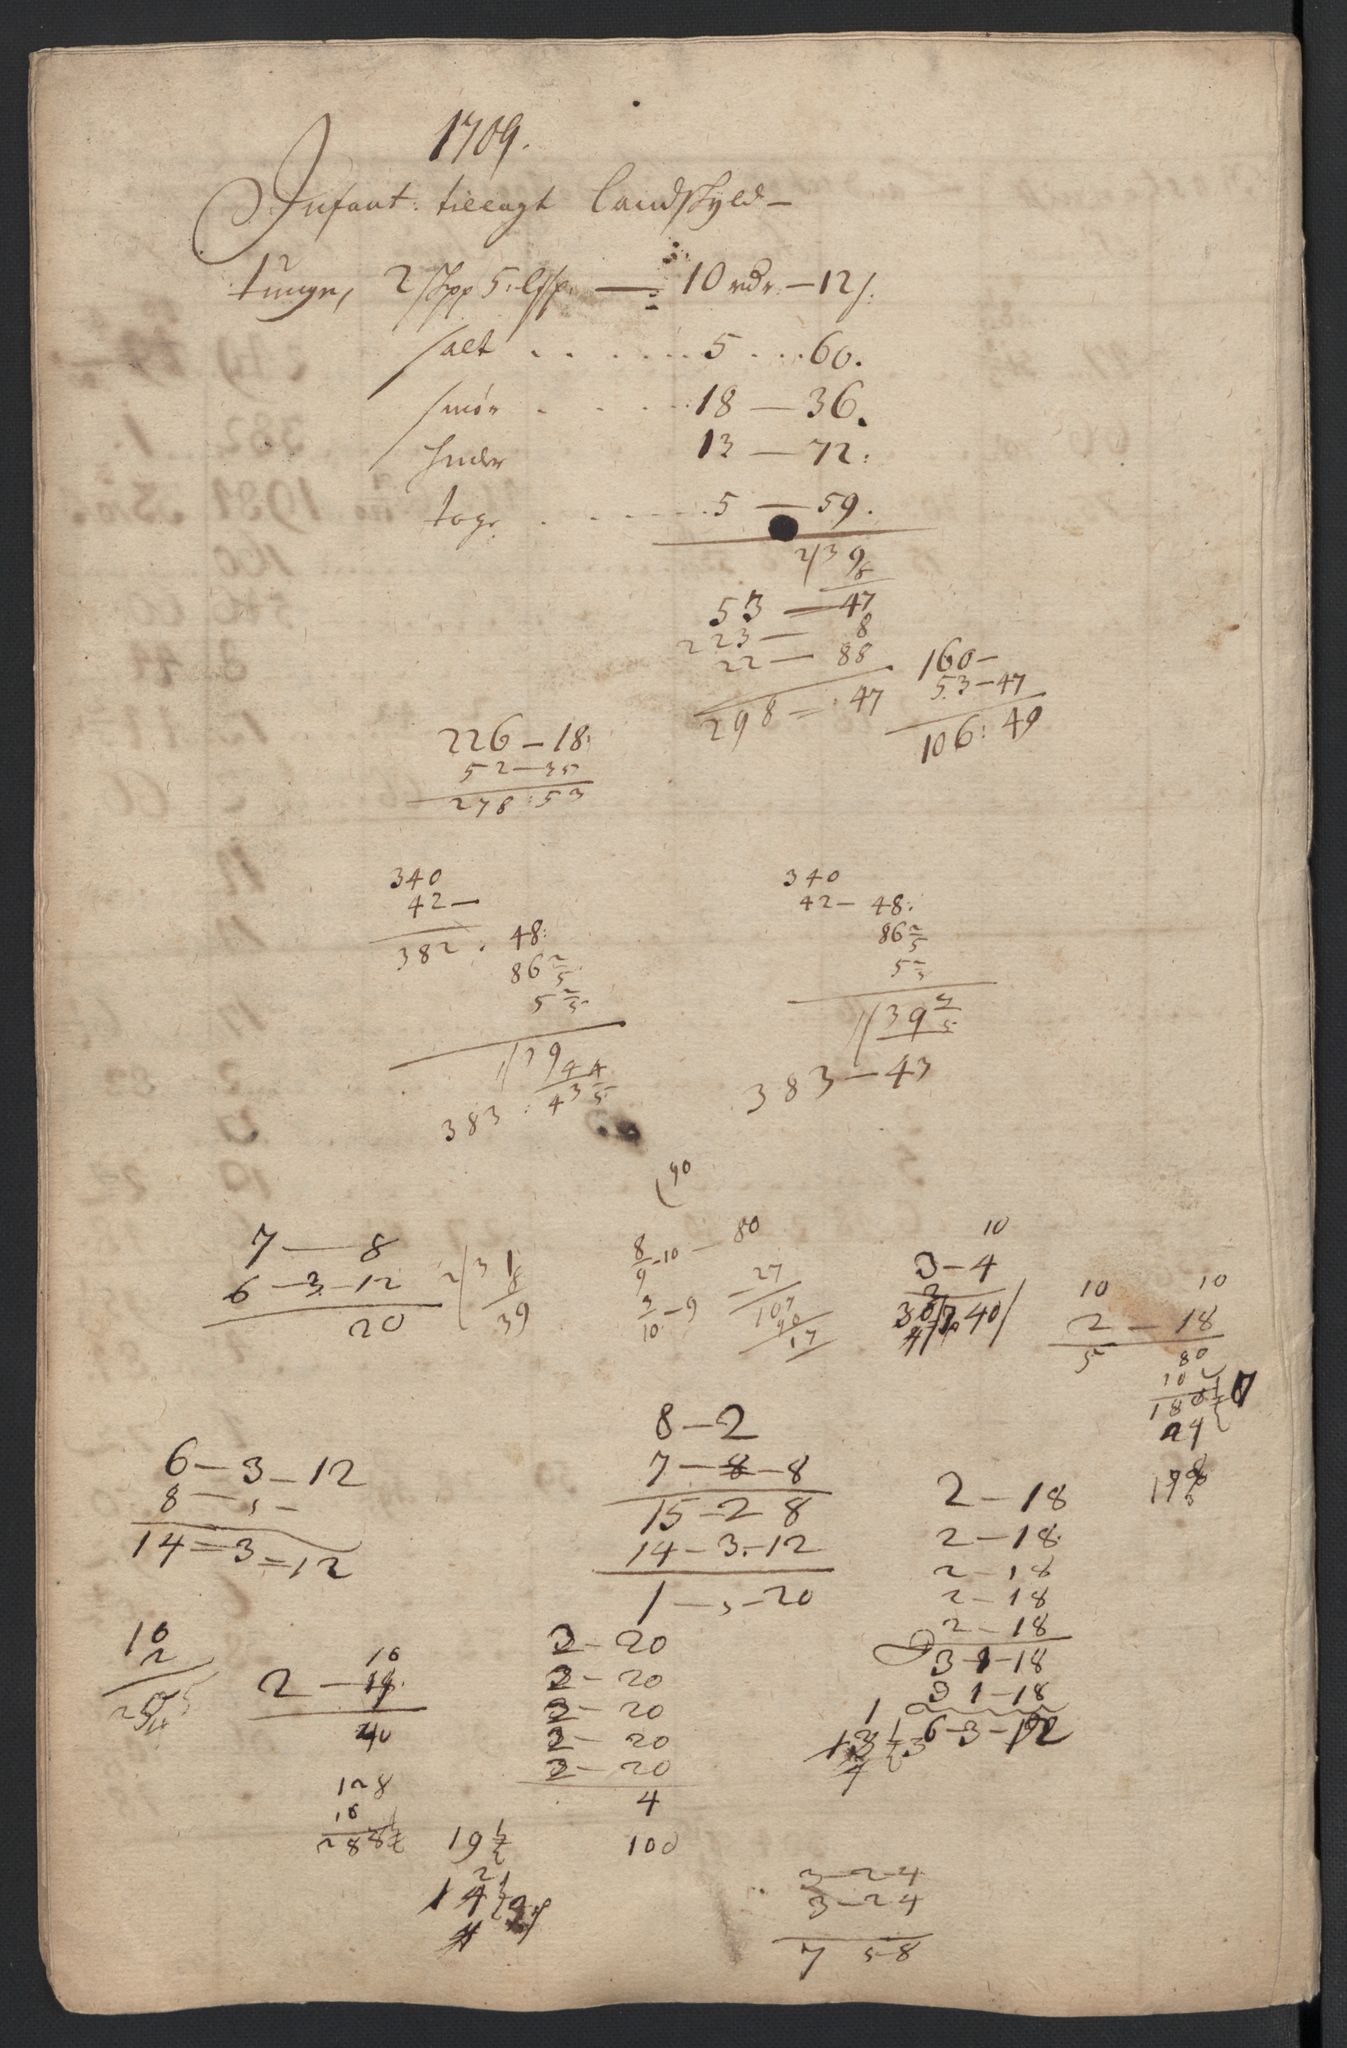 1709.
Infant: tillagt Landskyld –
2 Spp 5: — 10 rdr. – 12 s.
salt . . . . . . 5 . . . 60.
smør . . . . . 18 — 36.
huder 13 — 72:
. . . . . . . 5 — 59.
2/39
8
53 — 47
223 — 8
22 — 88
298 = : 47
160 –
53 – 47
106 : 49
226 – 18:
52 – 35
278 : 53
340
42 —
382 . 48:
86 2/5
5 2/5
383 : 43 4/5
340
42 – 48:
86 2/5
5 2/5
1/39 4/5
383 — 43
90
7 — 8
6 – 3 – 12
20
2/31
8
39
8/9 – 10 — 80
3/10 – 9
27
107
90
17
10
3 – 4
40
10 10
2 — 18
5 80
10
180
24
8 – 2
7 – 8 – 8
15 – 2 8
14 – 3. – 12
1 – 3 – 20
6 – 3 – 12
8 — 3 –
14 = 3 = 12
2 – 18
2 – 18.
2 – 18
2 – 18
2 – 18
3 – 1 – 18
3 1 – 18
6 – 3 – 12
10
2
10
2 —
40
128
10
288 1/2
19 1/2
2
14 1/2
2 – 20
2 – 20
2 – 20
2 – 20
2 – 20
4
100
3 – 24
3 – 24
7 5 – 8